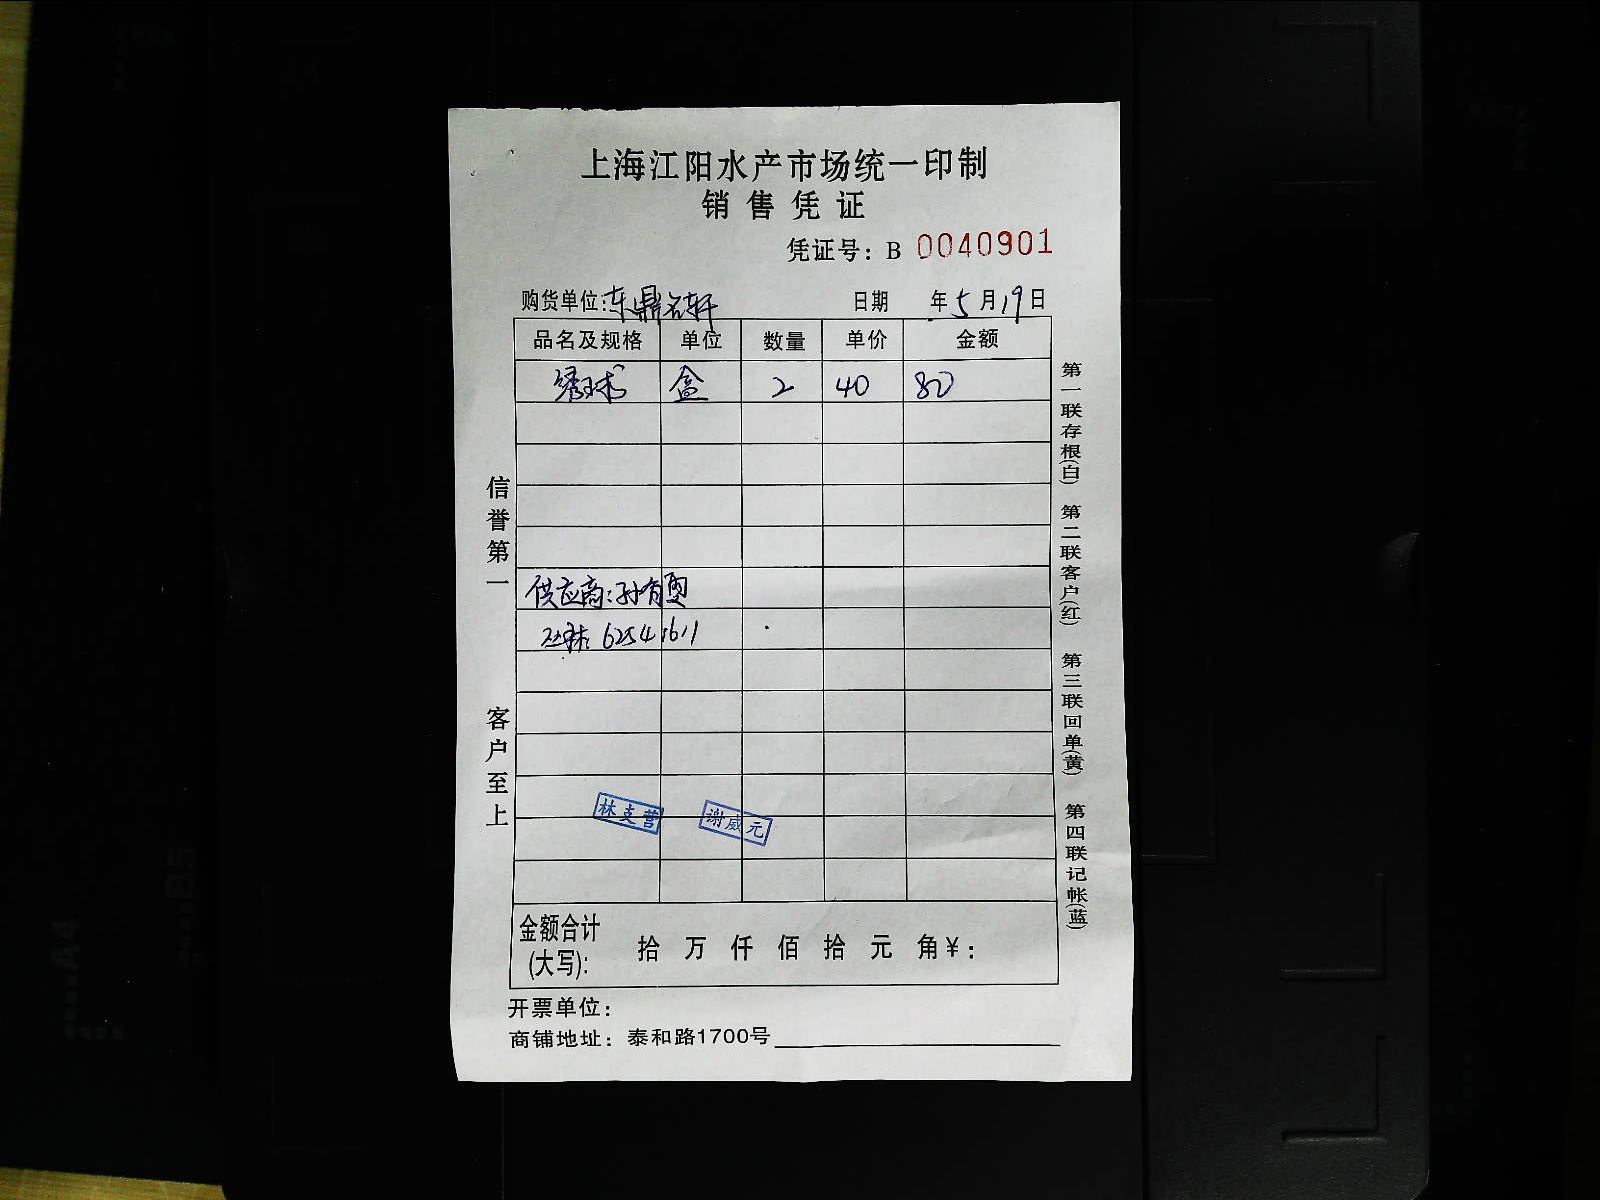 上海江阳水产市场统一印制
销售凭证
凭证号：B 0040901
购货单位：东鼎名轩 日期 年5月19日
品名及规格 单位 数量 单价 金额
绣球 盒 2 40 80
供应商：孙有
62541611
林支营 谢威元
金额合计(大写)： 拾 万 仟 佰 拾 元 角¥：
开票单位：
商铺地址：泰和路1700号
信誉第一 客户至上
第一联存根(白) 第二联客户(红) 第三联回单(黄) 第四联记帐(蓝)
A4
B5